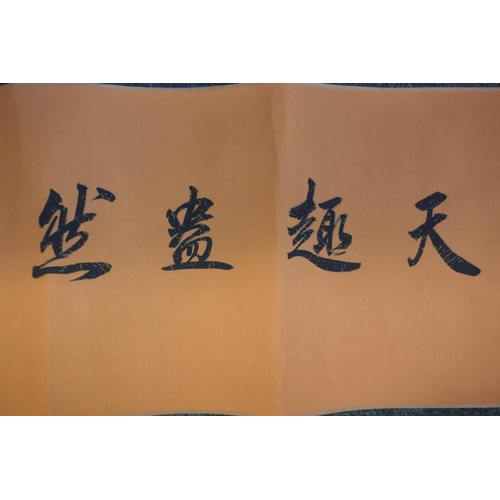 天趣盎然